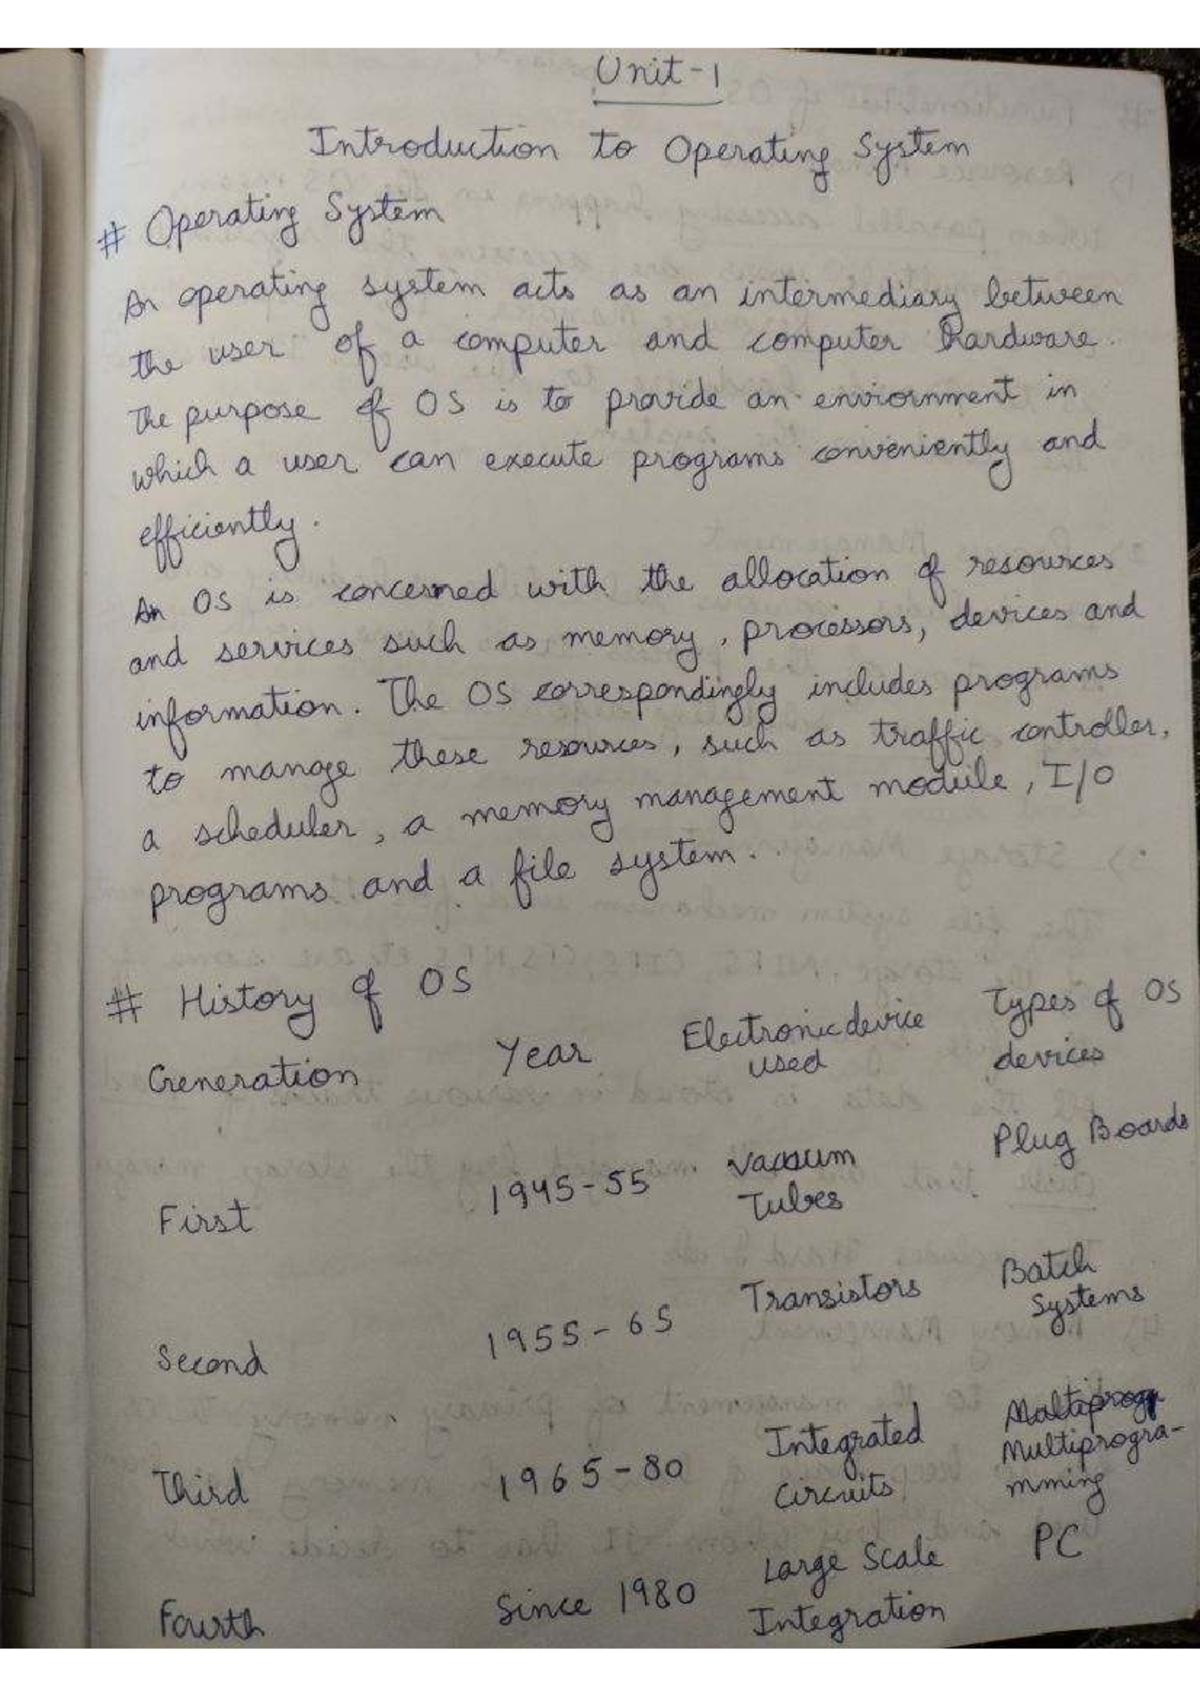 Unit-1
Introduction to Operating System
# Operating System
An operating system acts as an intermediary between
the user of a computer and computer hardware.
The purpose of OS is to provide an enviornment in
which a user can execute programs conveniently and
efficiently.
An OS is concerned with the allocation of resources
and services such as memory, processors, devices and
information. The OS correspondingly includes programs
to manage these resources, such as traffic controller,
a scheduler, a memory management module, I/O
programs and a file system.
# History of OS
Generation Year Electronic device used Types of OS devices
First 1945-55 Vacuum Tubes Plug Boards
Second 1955-65 Transistors Batch Systems
Third 1965-80 Integrated Circuits Multiprogra-
mming
Fourth Since 1980 Large Scale Integration PC